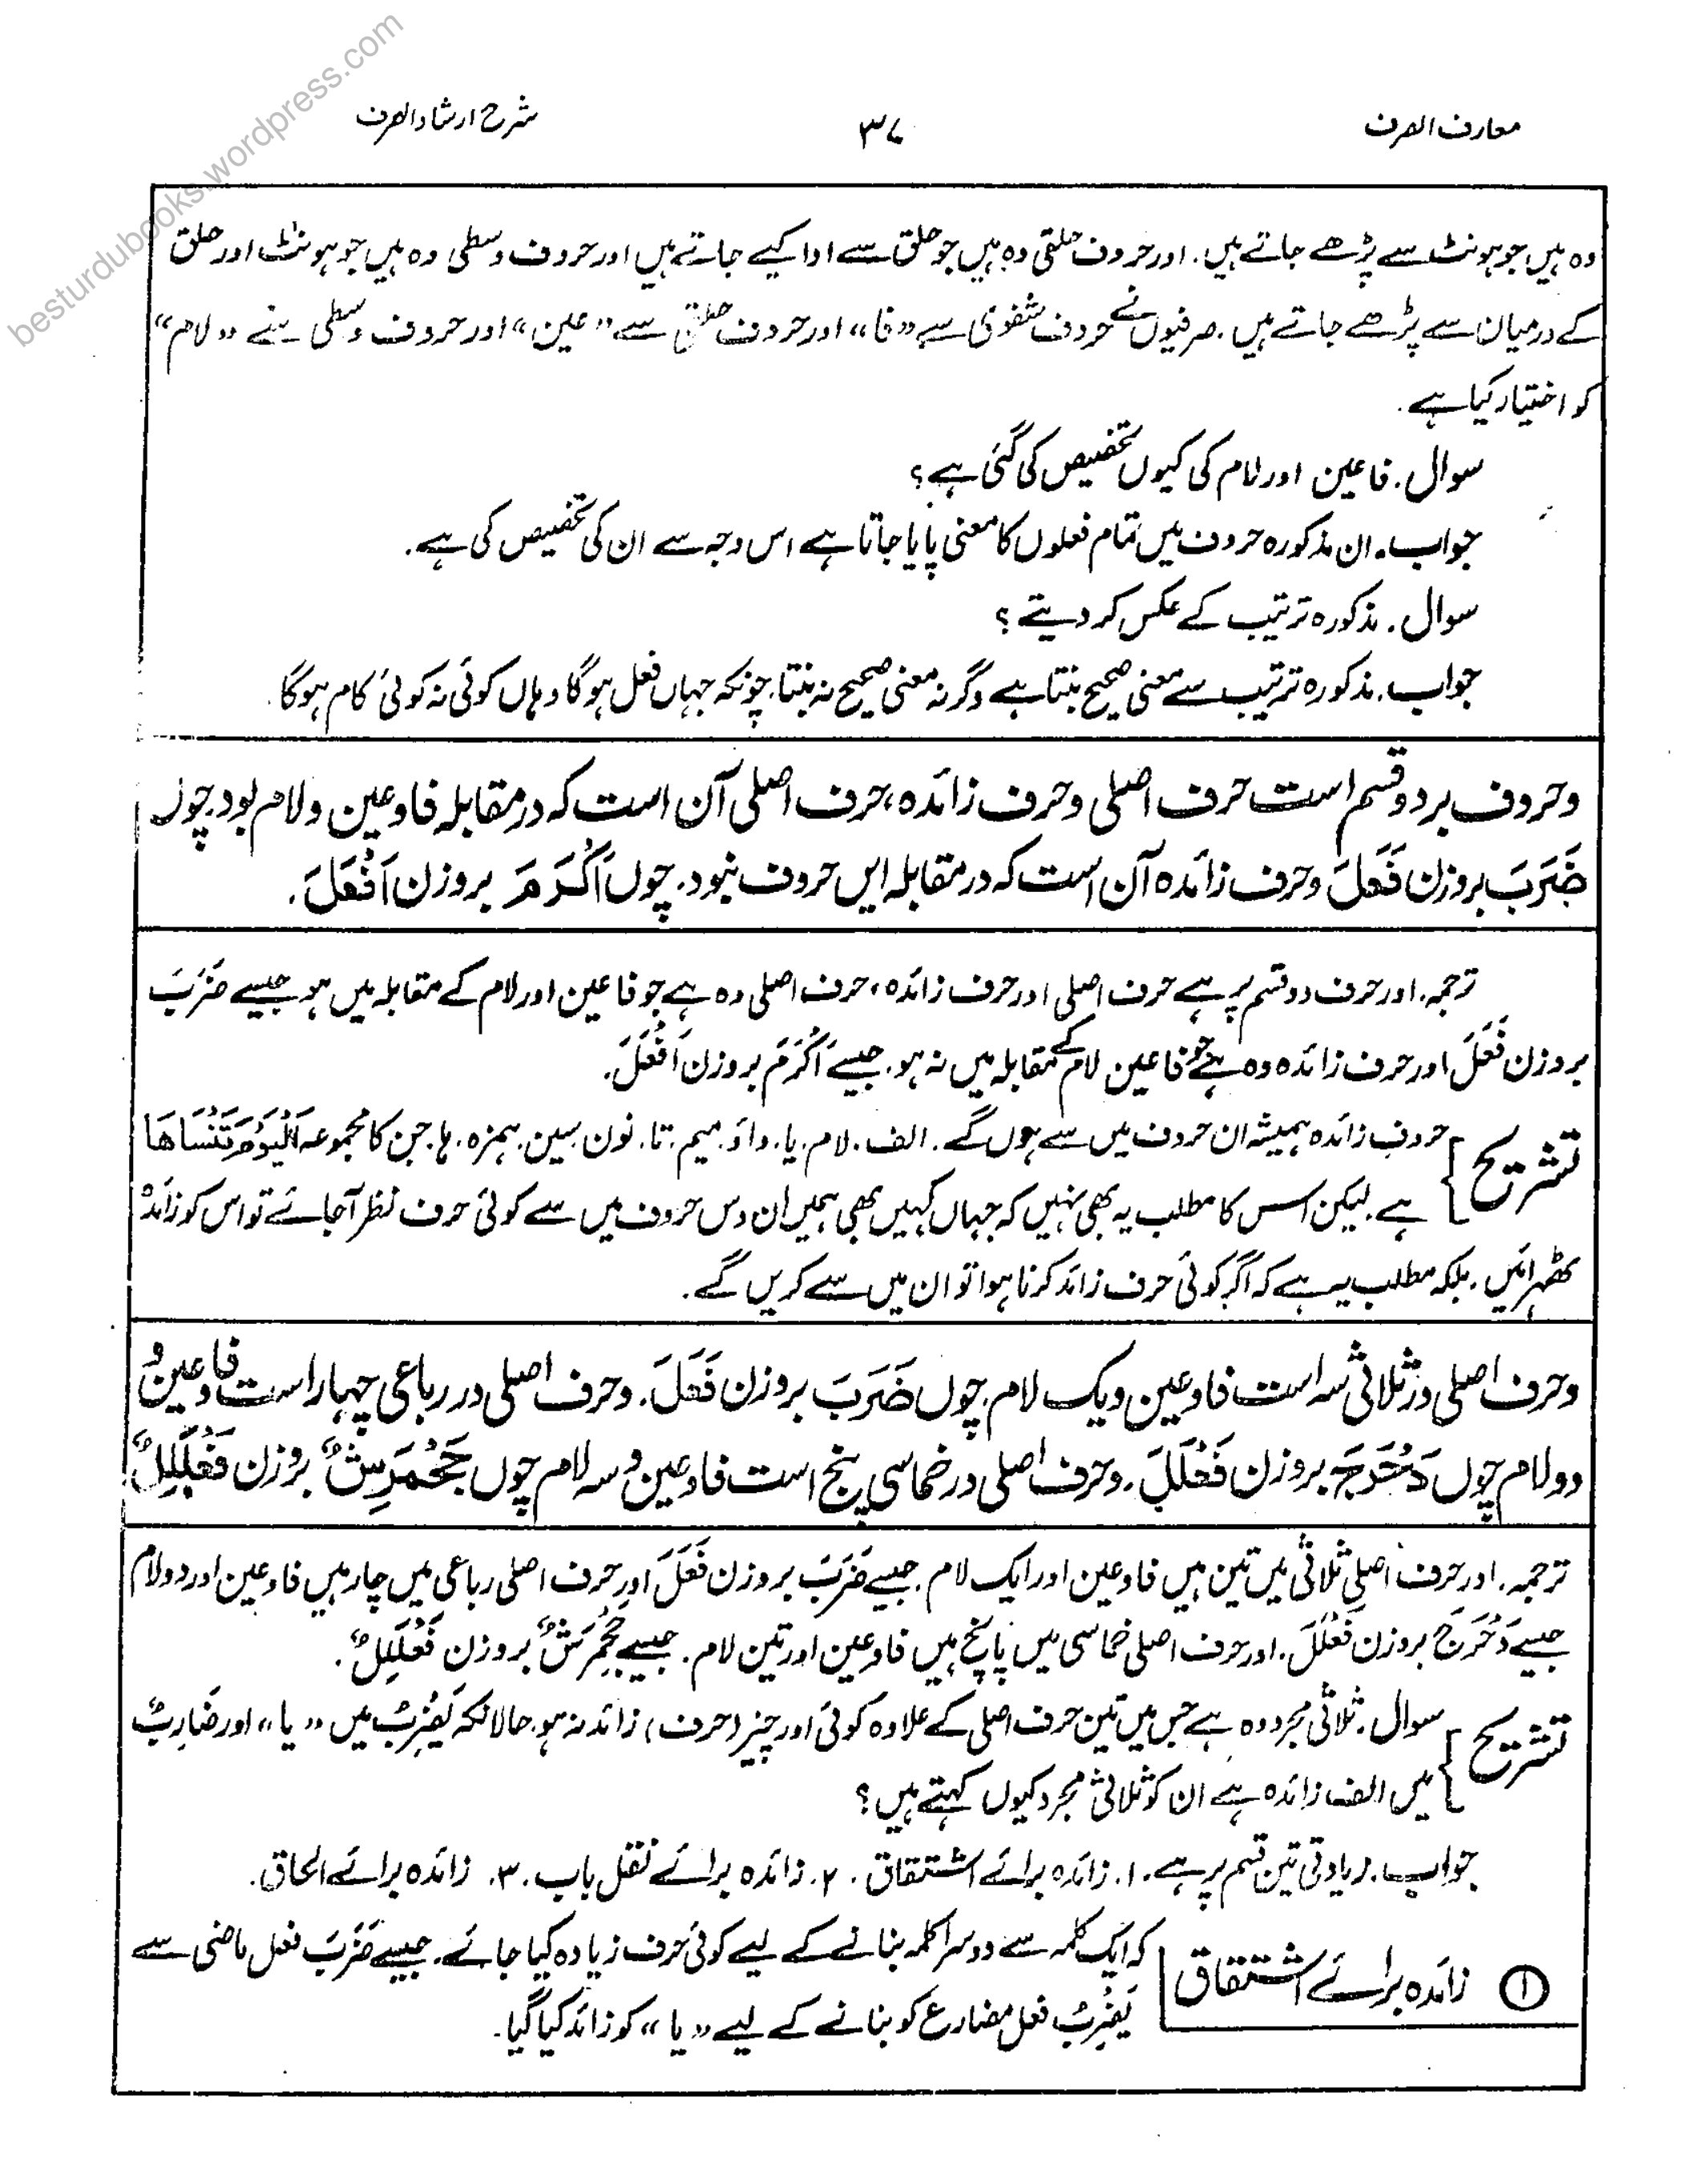 besturdubooks.wordpress.com
معارف الصرف
۳۷
شرح ارشاد الصرف
وہ ہیں جو ہونٹ سے پڑھے جاتے ہیں. اور حروف حلقی وہ ہیں جو حلق سے ادا کیے جاتے ہیں اور حروف وسطی وہ ہیں جو ہونٹ اور حلق
کے درمیان سے پڑھے جاتے ہیں. صرفیوں نے حروف شفوی سے «فا» اور حروف حلقی سے «عین» اور حروف وسطی سے «لام»
کو اختیار کیا ہے.
سوال. فا عین اور لام کی کیوں تخصیص کی گئی ہے؟
جواب. ان مذکورہ حروف میں تمام فعلوں کا معنی پایا جاتا ہے اس وجہ سے ان کی تخصیص کی ہے.
سوال. مذکورہ ترتیب کے عکس کر دیتے؟
جواب. مذکورہ ترتیب سے معنی صحیح بنتا ہے وگرنہ معنی صحیح نہ بنتا. چونکہ جہاں فعل ہوگا وہاں کوئی نہ کوئی کام ہوگا.
وحروف بر دو قسم است حرف اصلی و حرف زائدہ، حرف اصلی آن است کہ در مقابلہ فا و عین و لام بود چوں
ضَرَبَ بروزن فَعَلَ و حرف زائدہ آن است کہ در مقابلہ ایں حروف نبود. چوں اَكْرَمَ بروزن اَفْعَلَ.
ترجمہ. اور حرف دو قسم پر ہے حرف اصلی اور حرف زائدہ، حرف اصلی وہ ہے جو فا عین اور لام کے مقابلہ میں ہو جیسے ضَرَبَ
بروزن فَعَلَ اور حرف زائدہ وہ ہے جو فا عین لام کے مقابلہ میں نہ ہو. جیسے اَكْرَمَ بروزن اَفْعَلَ.
تشریح} حروف زائدہ ہمیشہ ان حروف میں سے ہوں گے. الف. لام. یا. واؤ. میم. تا. نون. سین. ہمزہ. ہا. جن کا مجموعہ اَلْيَوْمَ تَنْسَاهَا
ہے. لیکن اس کا مطلب یہ بھی نہیں کہ جہاں کہیں بھی ہمیں ان دس حروف میں سے کوئی حرف نظر آجائے تو اس کو زائد
ٹھہرائیں. بلکہ مطلب یہ ہے کہ اگر کوئی حرف زائد کرنا ہوا تو ان میں سے کریں گے.
وحرف اصلی در ثلاثی سہ است فا و عین و یک لام. چوں ضَرَبَ بروزن فَعَلَ. وحرف اصلی در رباعی چہار است فا و عین و
دو لام چوں دَحْرَجَ بروزن فَعْلَلَ. وحرف اصلی در خماسی پنج است فا و عین و سہ لام چوں جَحْمَرِشٌ بروزن فَعْلَلِلٌ
ترجمہ. اور حرف اصلی ثلاثی میں تین ہیں فا و عین اور ایک لام. جیسے ضَرَبَ بروزن فَعَلَ اور حرف اصلی رباعی میں چار ہیں فا و عین اور دو لام
جیسے دَحْرَجَ بروزن فَعْلَلَ. اور حرف اصلی خماسی میں پانچ ہیں فا و عین اور تین لام. جیسے جَحْمَرِشٌ بروزن فَعْلَلِلٌ.
تشریح} سوال. ثلاثی مجرد وہ ہے جس میں تین حرف اصلی کے علاوہ کوئی اور چیز (حرف) زائد نہ ہو. حالانکہ يَضْرِبُ میں «یا» اور ضَارِبٌ
میں الف زائدہ ہے ان کو ثلاثی مجرد کیوں کہتے ہیں؟
جواب. زیادتی تین قسم پر ہے. ۱. زائدہ برائے اشتقاق. ۲. زائدہ برائے نقل باب. ۳. زائدہ برائے الحاق.
① زائدہ برائے اشتقاق کہ ایک کلمہ سے دوسرا کلمہ بنانے کے لیے کوئی حرف زیادہ کیا جائے. جیسے ضَرَبَ فعل ماضی سے
يَضْرِبُ فعل مضارع کو بنانے کے لیے «یا» کو زائد کیا گیا.